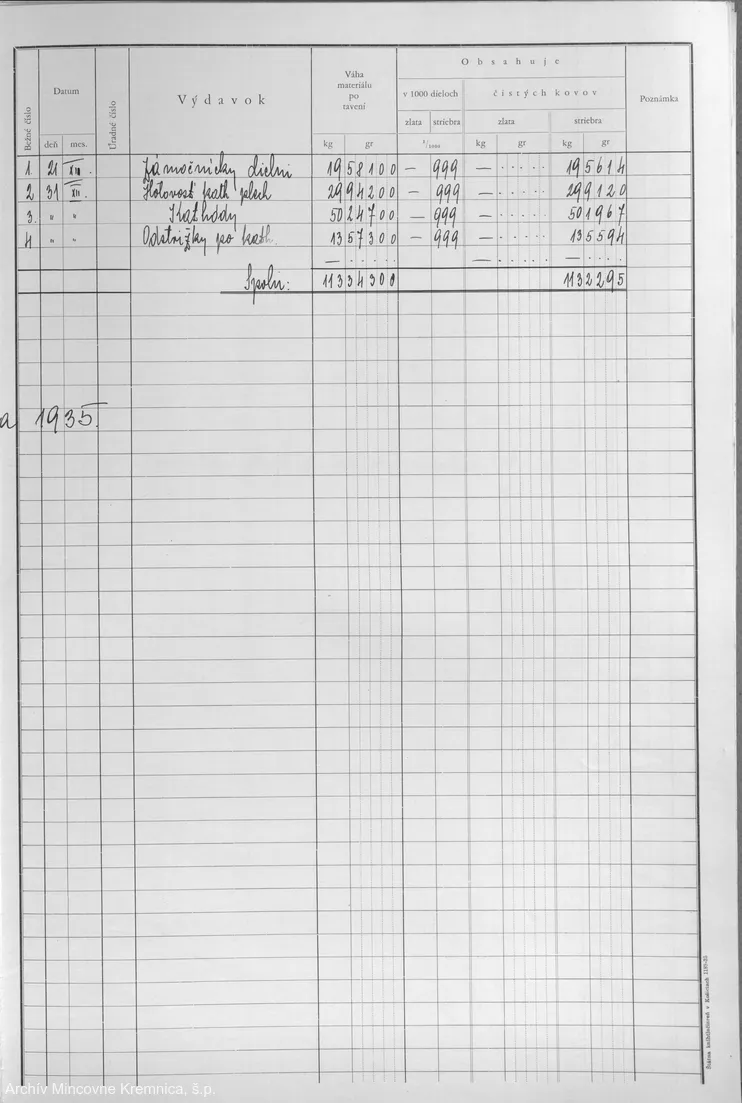 Obsahuje
Bežné číslo | Datum | Úradné číslo | Výdavok | Váha materiálu po tavení | v 1000 dieloch | čístých kovov | Poznámka
zlata | striebra | zlata | striebra
deň | mes. | kg | gr | ¹/₁₀₀₀ | kg | gr | kg | gr
1. | 21 | XII. | Zámočnícky dielni | 19 58100 | — | 999 | — ..... | 19 5614
2 | 31 | XII. | Hotovosť kath plech | 29 94200 | — | 999 | — ..... | 29 9120
3. | " | " | Kathódy | 50 24700 | — | 999 | — ..... | 50 1967
4 | " | " | Odstrižky po kath. | 13 57300 | — | 999 | — ..... | 13 5594
— ..... | — ..... | — ....
Spolu: | 113 34300 | 113 2295
a 1935.
Štátna kníhtlačiareň v Košiciach 1189-35
Archív Mincovne Kremnica, š.p.